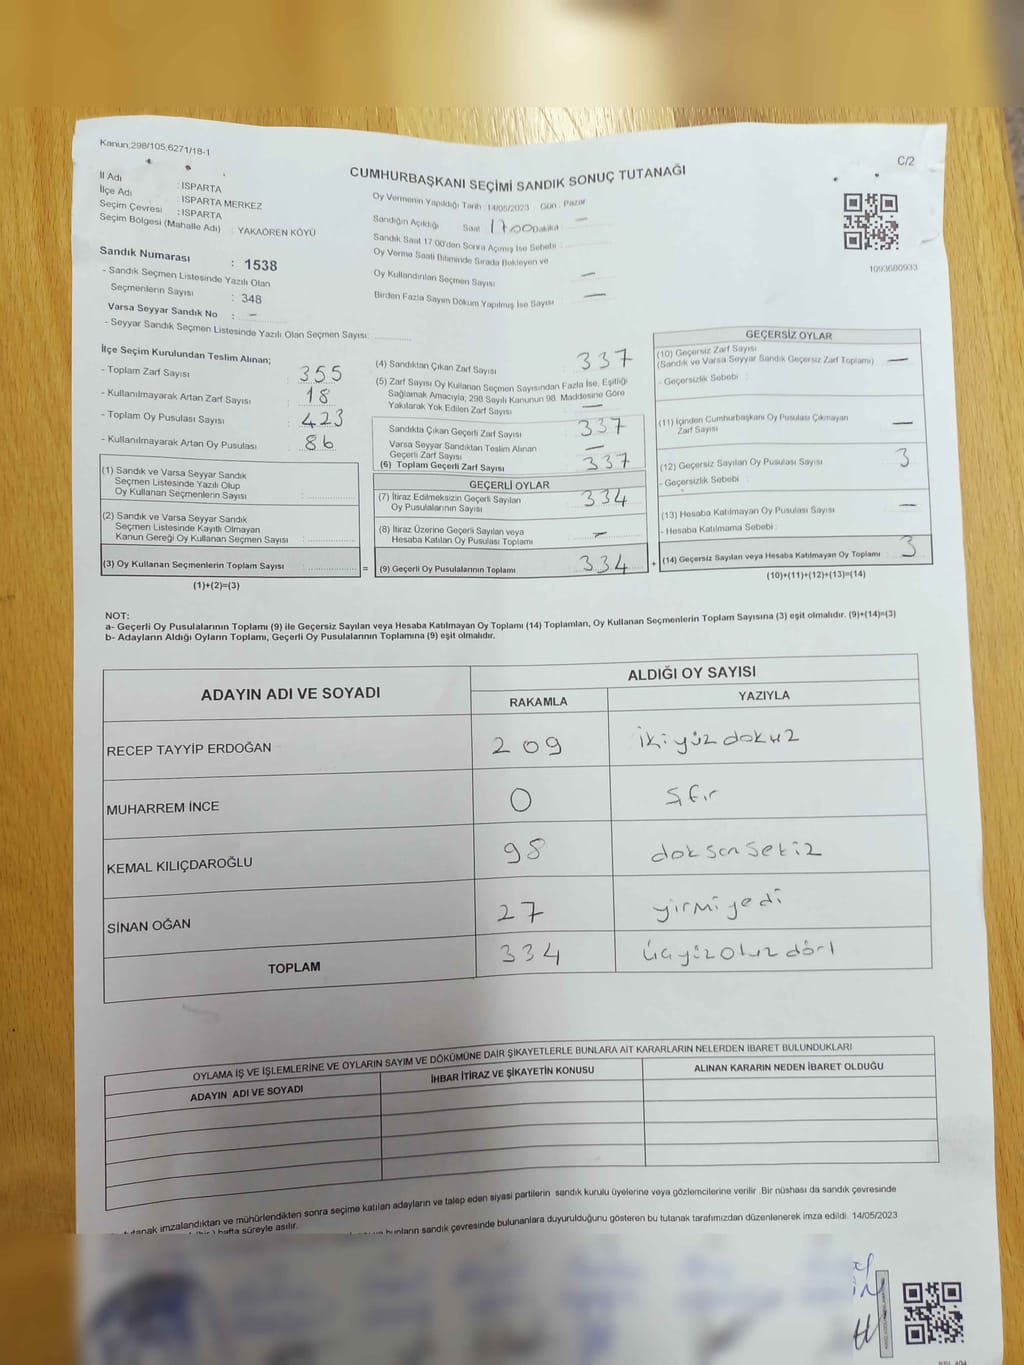 Kanun;298/105,6271/18-1
C/2
CUMHURBAŞKANI SEÇİMİ SANDIK SONUÇ TUTANAĞI
İl Adı : ISPARTA
İlçe Adı : ISPARTA MERKEZ
Seçim Çevresi : ISPARTA
Seçim Bölgesi (Mahalle Adı) : YAKAÖREN KÖYÜ
Sandık Numarası : 1538
- Sandık Seçmen Listesinde Yazılı Olan
Seçmenlerin Sayısı : 348
Varsa Seyyar Sandık No : –
- Seyyar Sandık Seçmen Listesinde Yazılı Olan Seçmen Sayısı:
Oy Vermenin Yapıldığı Tarih : 14/05/2023 Gün : Pazar
Sandığın Açıldığı Saat : 17.00 Dakika : –
Sandık Saat 17:00'den Sonra Açımış İse Sebebi :
Oy Verme Saati Bitiminde Sırada Bekleyen ve
Oy Kullandırılan Seçmen Sayısı : –
Birden Fazla Sayım Döküm Yapılmış İse Sayısı : –
1093680933
İlçe Seçim Kurulundan Teslim Alınan;
- Toplam Zarf Sayısı : 355
- Kullanılmayarak Artan Zarf Sayısı : 18
- Toplam Oy Pusulası Sayısı : 423
- Kullanılmayarak Artan Oy Pusulası : 86
(1) Sandık ve Varsa Seyyar Sandık
Seçmen Listesinde Yazılı Olup
Oy Kullanan Seçmenlerin Sayısı :
(2) Sandık ve Varsa Seyyar Sandık
Seçmen Listesinde Kayıtlı Olmayan
Kanun Gereği Oy Kullanan Seçmen Sayısı :
(3) Oy Kullanan Seçmenlerin Toplam Sayısı : =
(1)+(2)=(3)
(4) Sandıktan Çıkan Zarf Sayısı : 337
(5) Zarf Sayısı Oy Kullanan Seçmen Sayısından Fazla İse, Eşitliği
Sağlamak Amacıyla; 298 Sayılı Kanunun 98. Maddesine Göre
Yakılarak Yok Edilen Zarf Sayısı : –
Sandıkta Çıkan Geçerli Zarf Sayısı : 337
Varsa Seyyar Sandıktan Teslim Alınan
Geçerli Zarf Sayısı : –
(6) Toplam Geçerli Zarf Sayısı : 337
GEÇERLİ OYLAR
(7) İtiraz Edilmeksizin Geçerli Sayılan
Oy Pusulasının Sayısı : 334
(8) İtiraz Üzerine Geçerli Sayılan veya
Hesaba Katılan Oy Pusulası Toplamı : –
(9) Geçerli Oy Pusulalarının Toplamı : 334 +
GEÇERSİZ OYLAR
(10) Geçersiz Zarf Sayısı
(Sandık ve Varsa Seyyar Sandık Geçersiz Zarf Toplamı) : –
- Geçersizlik Sebebi :
(11) İçinden Cumhurbaşkanı Oy Pusulası Çıkmayan
Zarf Sayısı : –
(12) Geçersiz Sayılan Oy Pusulası Sayısı : 3
- Geçersizlik Sebebi :
(13) Hesaba Katılmayan Oy Pusulası Sayısı : –
- Hesaba Katılmama Sebebi :
(14) Geçersiz Sayılan veya Hesaba Katılmayan Oy Toplamı : 3
(10)+(11)+(12)+(13)=(14)
NOT:
a- Geçerli Oy Pusulalarının Toplamı (9) ile Geçersiz Sayılan veya Hesaba Katılmayan Oy Toplamı (14) Toplamları, Oy Kullanan Seçmenlerin Toplam Sayısına (3) eşit olmalıdır. (9)+(14)=(3)
b- Adayların Aldığı Oyların Toplamı, Geçerli Oy Pusulalarının Toplamına (9) eşit olmalıdır.
ADAYIN ADI VE SOYADI
ALDIĞI OY SAYISI
RAKAMLA YAZIYLA
RECEP TAYYİP ERDOĞAN 209 ikiyüzdokuz
MUHARREM İNCE 0 sıfır
KEMAL KILIÇDAROĞLU 98 doksansekiz
SİNAN OĞAN 27 yirmiyedi
TOPLAM 334 üçyüzotuzdört
OYLAMA İŞ VE İŞLEMLERİNE VE OYLARIN SAYIM VE DÖKÜMÜNE DAİR ŞİKAYETLERLE BUNLARA AİT KARARLARIN NELERDEN İBARET BULUNDUKLARI
ADAYIN ADI VE SOYADI İHBAR İTİRAZ VE ŞİKAYETİN KONUSU ALINAN KARARIN NEDEN İBARET OLDUĞU
tutanak imzalandıktan ve mühürlendikten sonra seçime katılan adayların ve talep eden siyasi partilerin sandık kurulu üyelerine veya gözlemcilerine verilir .Bir nüshası da sandık çevresinde
hafta süreyle asılır.
bunların sandık çevresinde bulunanlara duyurulduğunu gösteren bu tutanak tarafımızdan düzenlenerek imza edildi. 14/05/2023